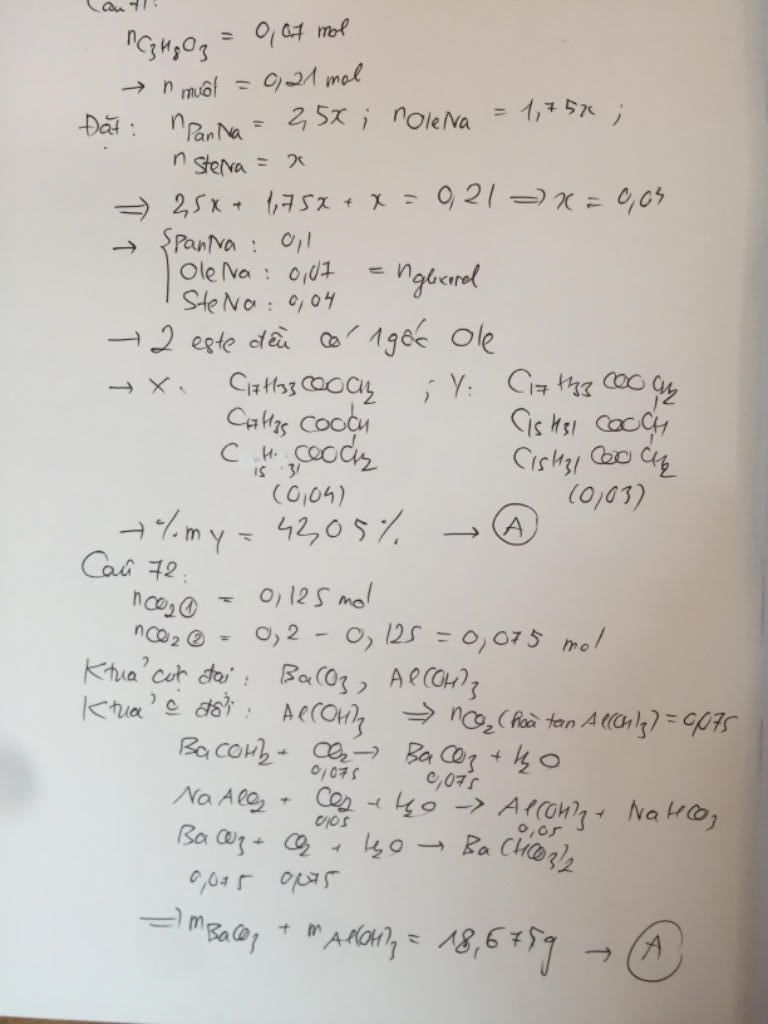 Câu 71:
nC3H8O3 = 0,07 mol
→ n muối = 0,21 mol
Đặt: nPanNa = 2,5x ; nOleNa = 1,75x ;
nSteNa = x
⇒ 2,5x + 1,75x + x = 0,21 ⇒ x = 0,04
→ { PanNa : 0,1
OleNa : 0,07 = nglixerol
SteNa : 0,04
→ 2 este đều có 1 gốc Ole
→ X: C17H33COOCH2 ; Y: C17H33COOCH2
C17H35COOCH C15H31COOCH
C15H31COOCH2 C15H31COOCH2
(0,04) (0,03)
→ %mY = 42,05% → A
Câu 72:
nCO2① = 0,125 mol
nCO2② = 0,2 - 0,125 = 0,075 mol
Ktủa cực đại: BaCO3, Al(OH)3
Ktủa c đổi: Al(OH)3 ⇒ nCO2 (hoà tan Al(OH)3) = 0,075
Ba(OH)2 + CO2 → BaCO3 + H2O
0,075 0,075
NaAlO2 + CO2 + H2O → Al(OH)3 + NaHCO3
0,05 0,05
BaCO3 + CO2 + H2O → Ba(HCO3)2
0,075 0,075
⇒ mBaCO3 + mAl(OH)3 = 18,675g → A